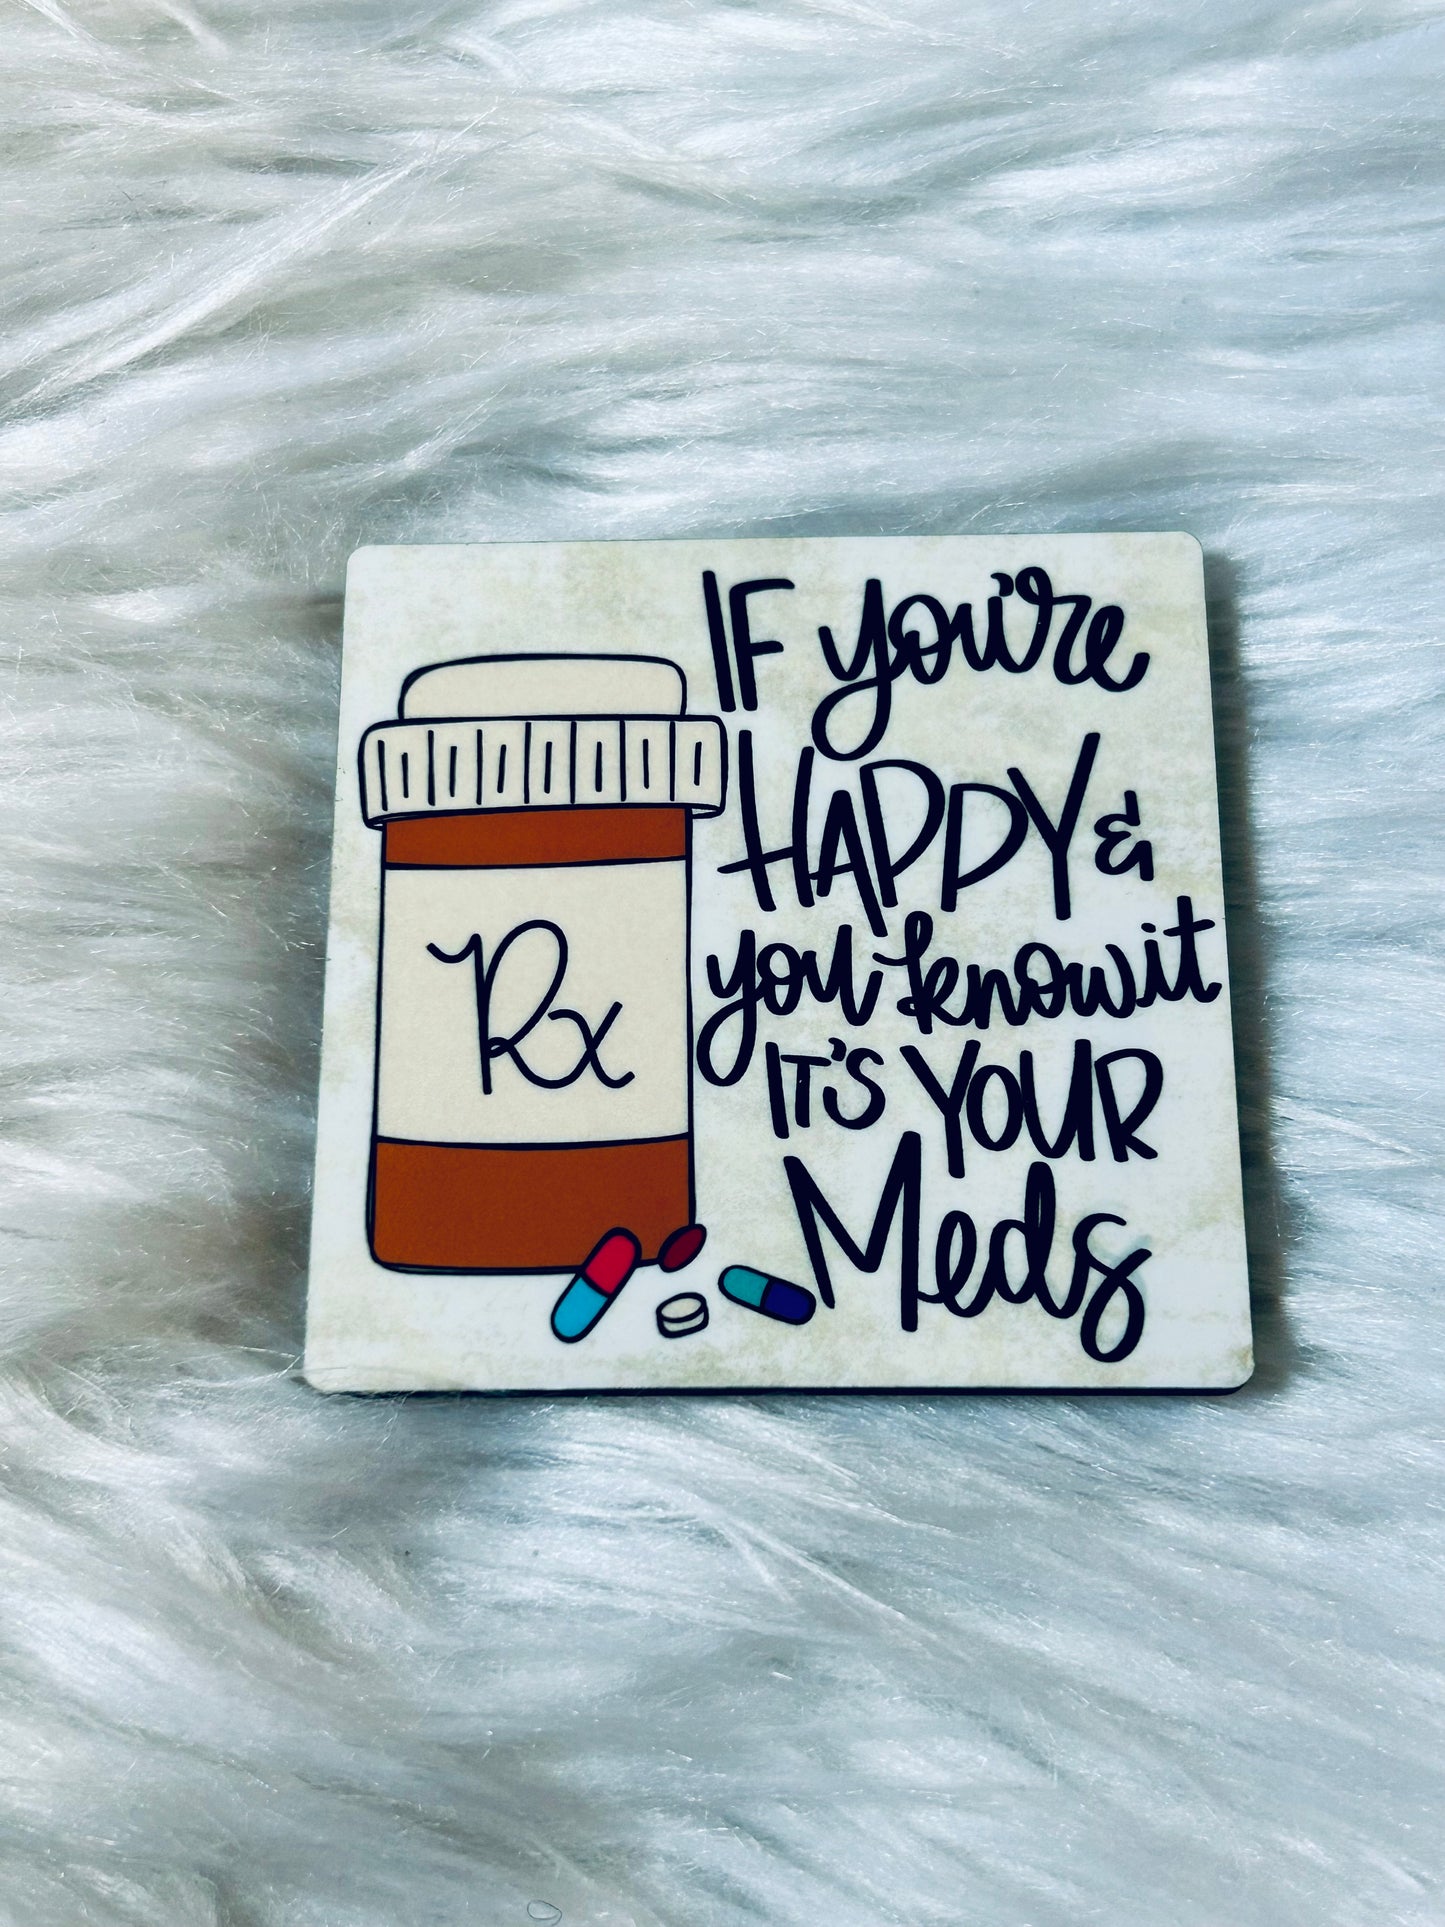 IF you're
HAPPY &
you know it
IT'S YOUR
Meds
Rx